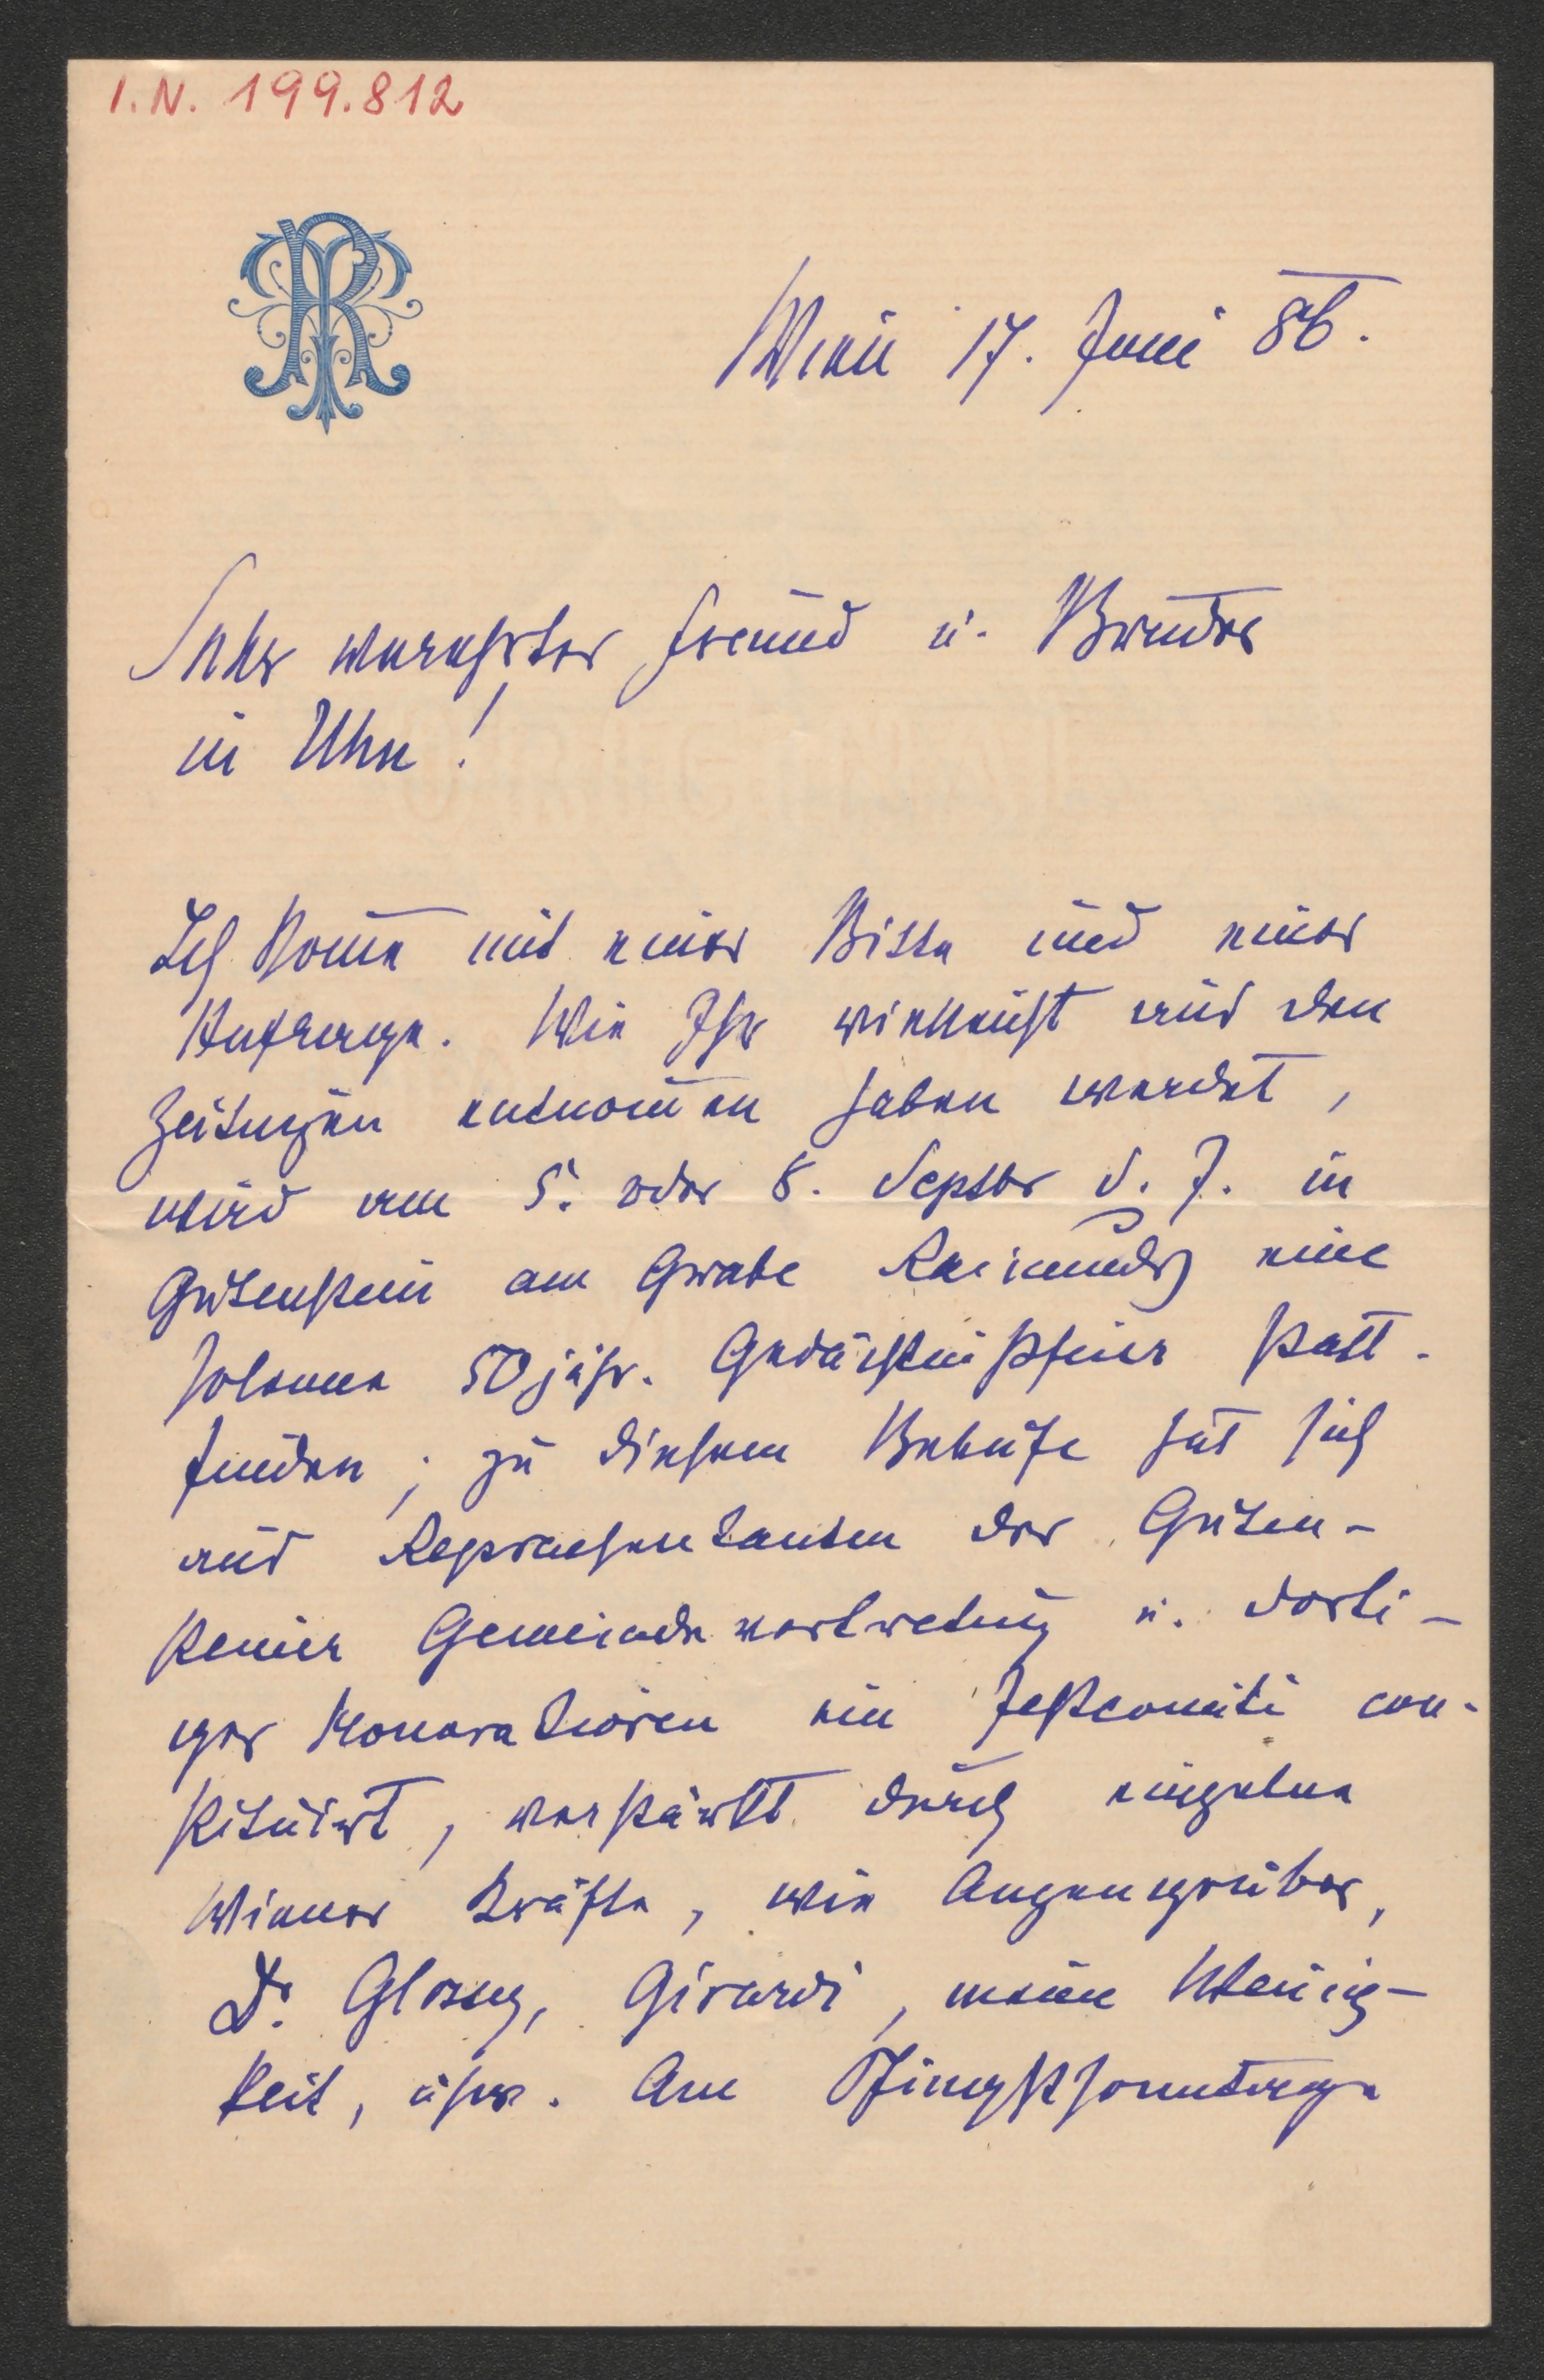 I.N. 199.812
Wien 17. Juni 86.
Sehr verehrter Freund u. Bruder
in Uhu!
Ich kom̄e mit einer Bitte und einer
Anfrage. Wie Ihr vielleicht aus den
Zeitungen entnom̄en haben werdet,
wird am 5. oder 8. Septbr d. J. in
Gutenstein am Grabe Raimunds eine
solenne 50jähr. Gedächtnißfeier statt-
finden; zu diesem Behufe hat sich
aus Repraesentanten der Guten-
steiner Gemeindevertretung u. dorti-
ger Honoratioren ein Festcomité con-
stituirt, verstärkt durch einzelne
Wiener Kräfte, wie Anzengruber,
Dr. Glossy, Girardi, meine Wenig-
keit, usw. Am Pfingstsonntage